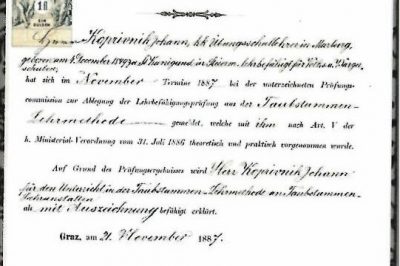 18
Herrn Koprivnik Johann, k.k. Übungsschullehrer in Marburg,
geboren am 4. December 1849 zu St. Kunigund in Steierm. lehrbefähigt für Volks u. Bürger-
schulen,
hat sich im November- Termine 1887 bei der unterzeichneten Prüfungs-
commission zur Ablegung der Lehrbefähigungsprüfung aus der Taubstummen-
Lehrmethode gemeldet, welche mit ihm nach Art. V der
h. Ministerial-Verordnung vom 31. Juli 1886 theoretisch und praktisch vorgenommen wurde.
Auf Grund des Prüfungsergebnisses wird Herr Koprivnik Johann
für den Unterricht in der Taubstummen-Lehrmethode an Taubstummen-
Lehranstalten
als mit Auszeichnung befähigt erklärt.
Graz, am 21. November 1887.